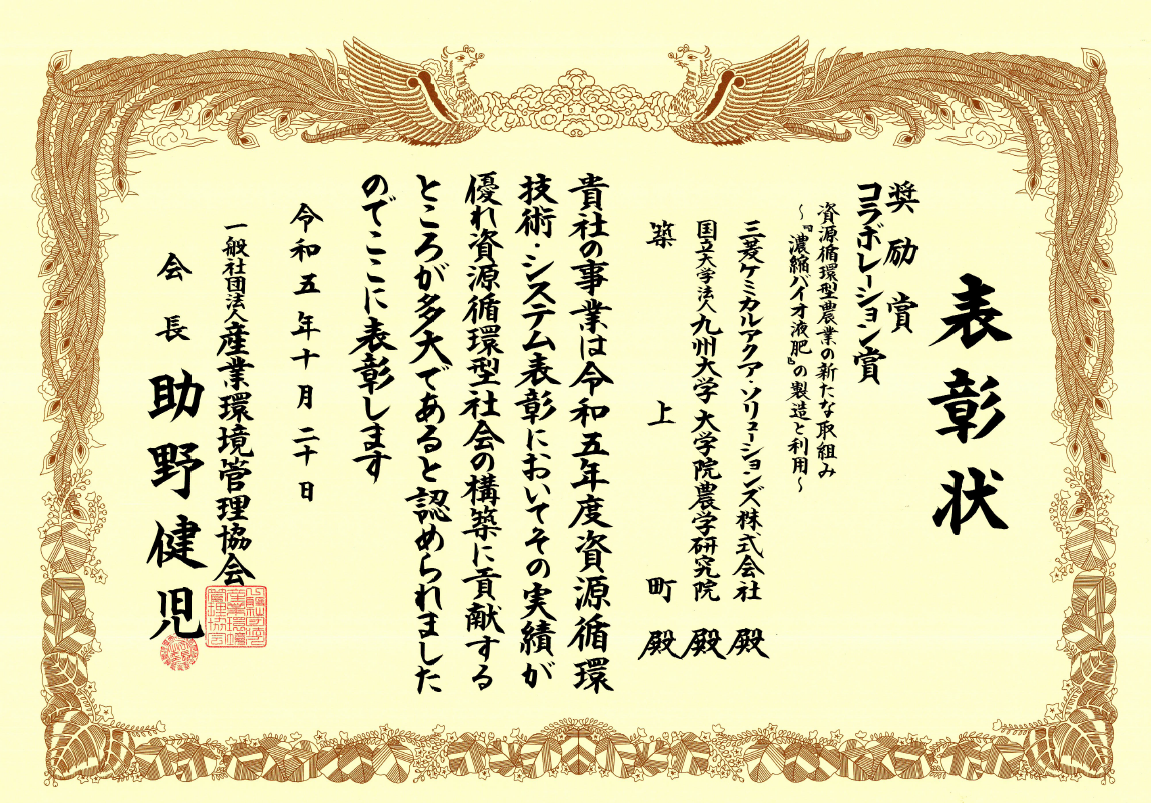 表彰状
奨励賞
コラボレーション賞
資源循環型農業の新たな取組み
～『濃縮バイオ液肥』の製造と利用～
三菱ケミカルアクア・ソリューションズ株式会社 殿
国立大学法人九州大学 大学院農学研究院 殿
築上町 殿
貴社の事業は令和五年度資源循環
技術・システム表彰においてその実績が
優れ資源循環型社会の構築に貢献する
ところが多大であると認められました
のでここに表彰します
令和五年十月二十日
一般社団法人産業環境管理協会
会長 助野健児